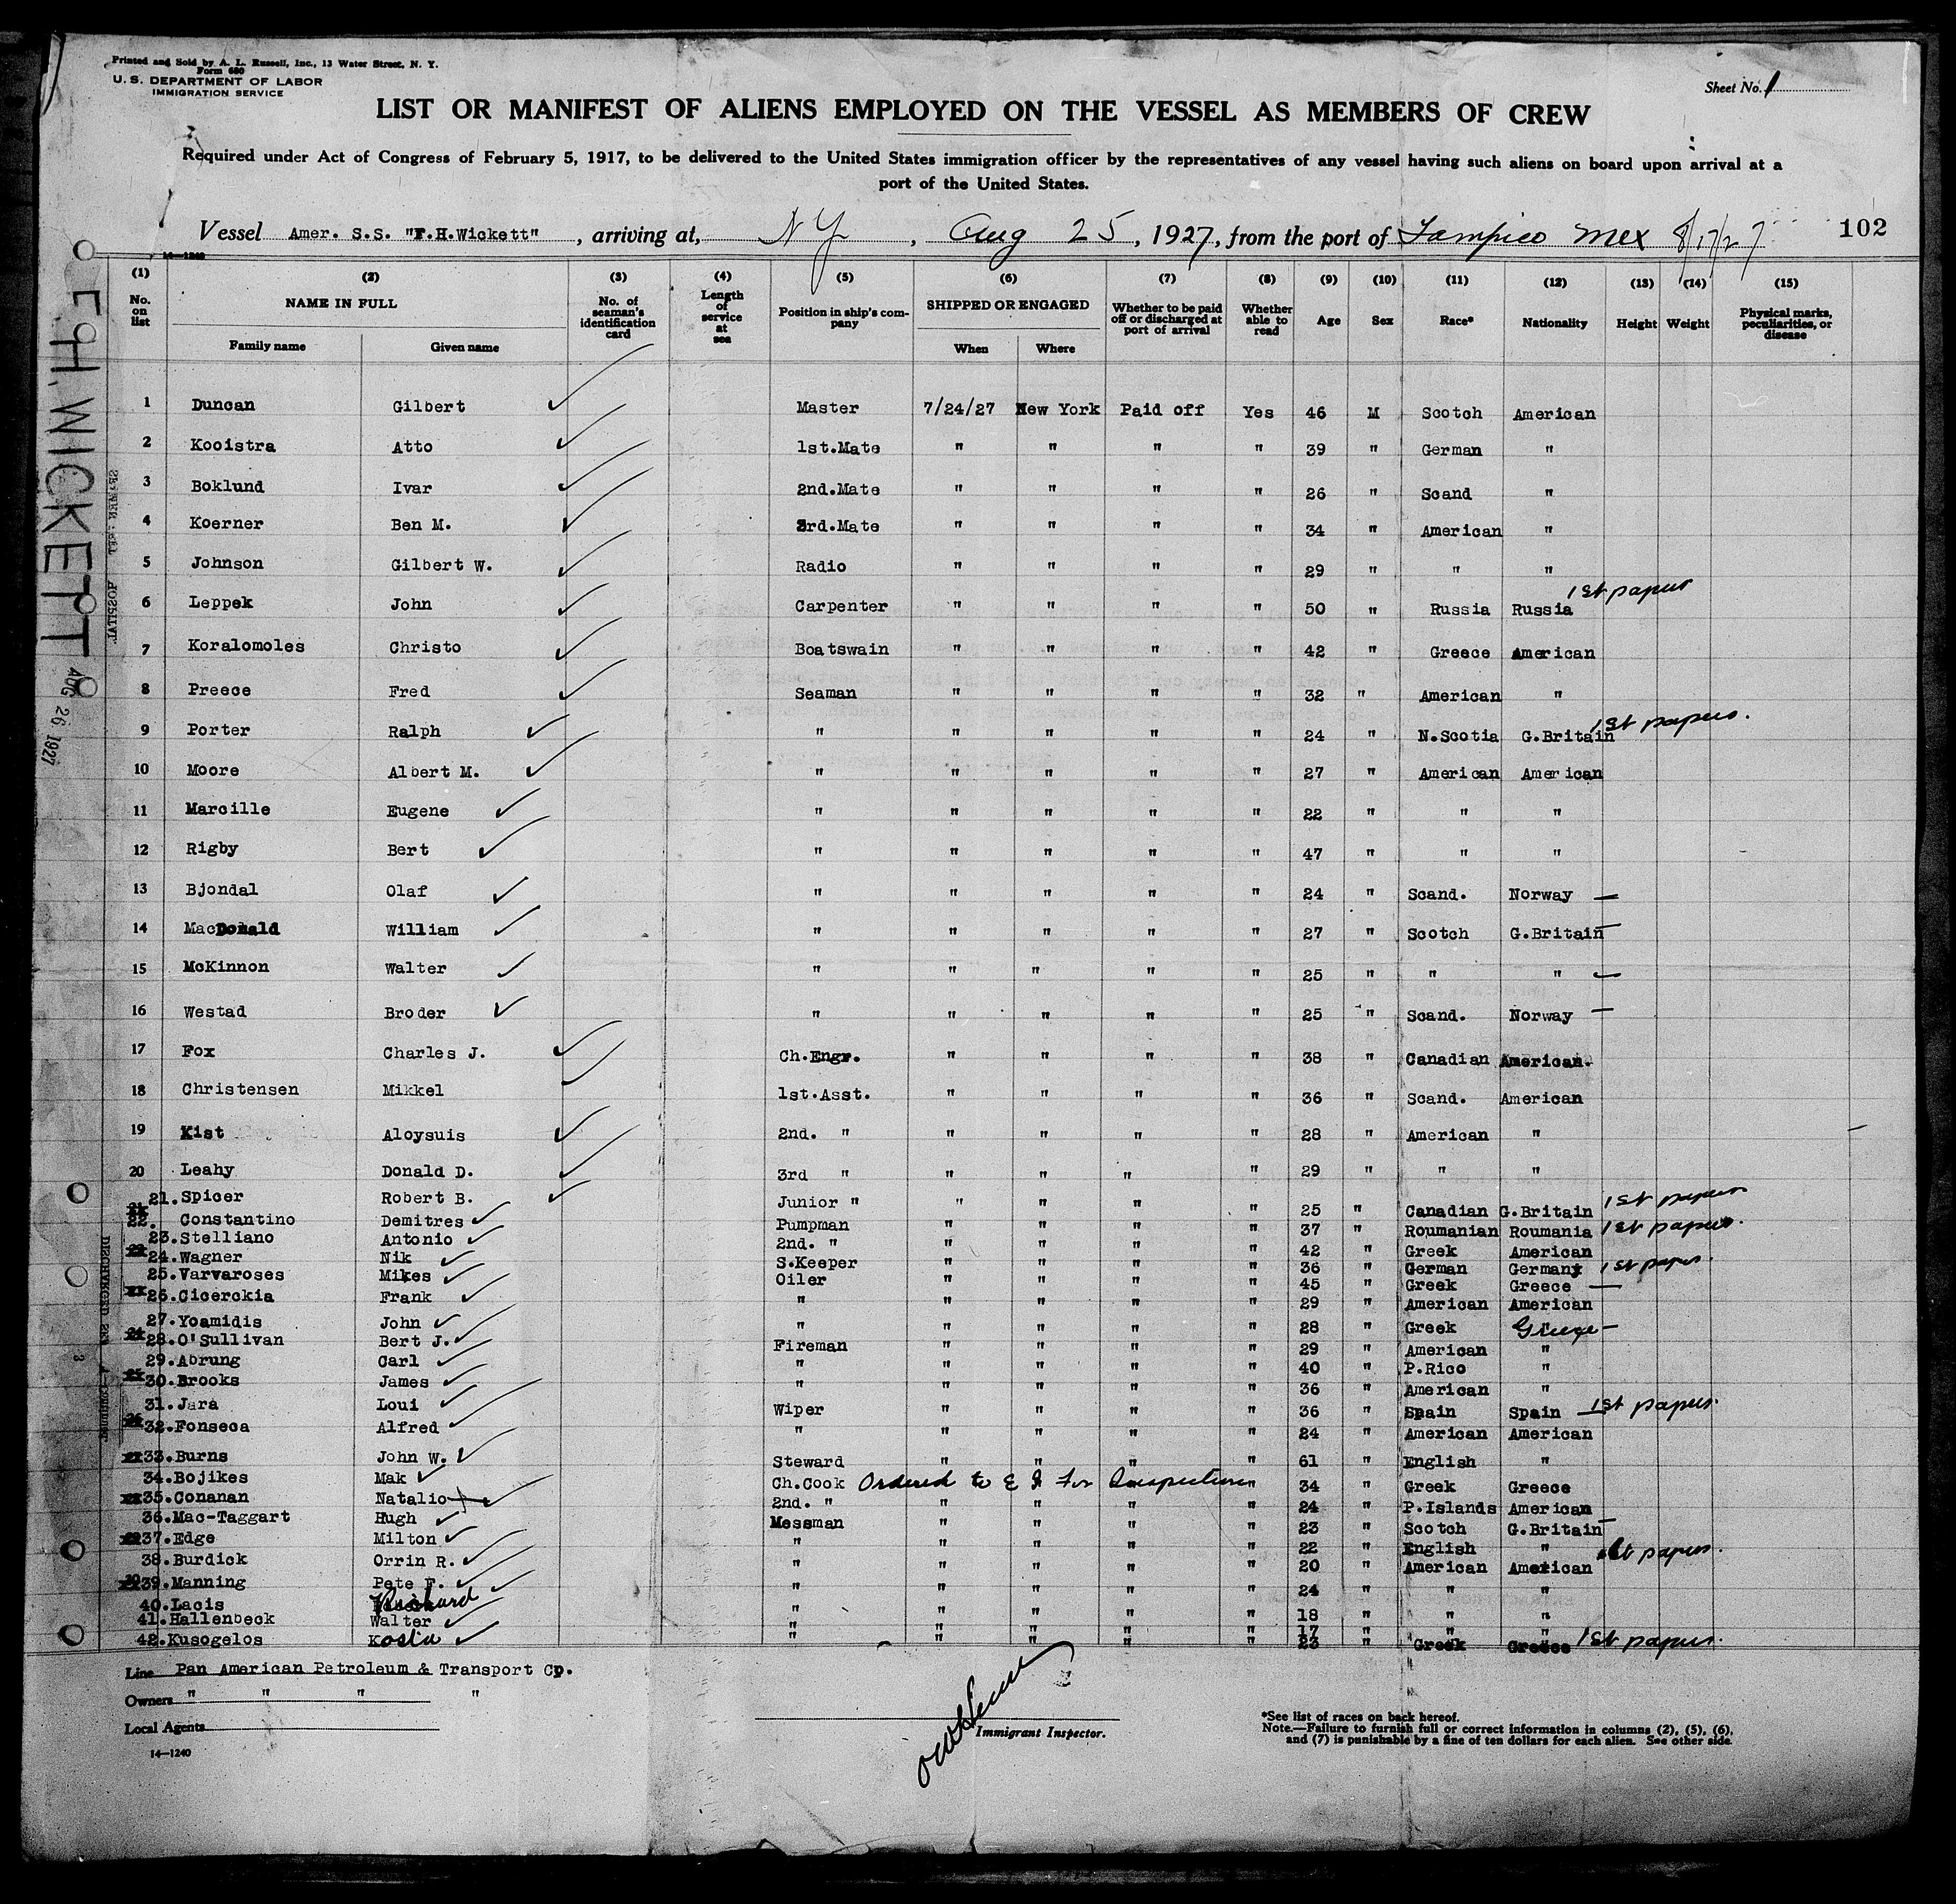 Printed and Sold by A. L. Russell, Inc., 13 Water Street, N. Y.
Form 680
U. S. DEPARTMENT OF LABOR
IMMIGRATION SERVICE
Sheet No. 1
LIST OR MANIFEST OF ALIENS EMPLOYED ON THE VESSEL AS MEMBERS OF CREW
Required under Act of Congress of February 5, 1917, to be delivered to the United States immigration officer by the representatives of any vessel having such aliens on board upon arrival at a
port of the United States.
Vessel Amer. S.S. "F.H.Wickett", arriving at, NY, Aug 25, 1927, from the port of Tampico Mex 8/17/27 102
14—1240
F.H. WICKETT
AUG 26 1927
(1) (2) (3) (4) (5) (6) (7) (8) (9) (10) (11) (12) (13) (14) (15)
No. on list NAME IN FULL No. of seaman's identification card Length of service at sea Position in ship's company SHIPPED OR ENGAGED Whether to be paid off or discharged at port of arrival Whether able to read Age Sex Race* Nationality Height Weight Physical marks, peculiarities, or disease
Family name Given name When Where
1 Duncan Gilbert Master 7/24/27 New York Paid off Yes 46 M Scotch American
2 Kooistra Atto 1st.Mate " " " " 39 " German "
3 Boklund Ivar 2nd.Mate " " " " 26 " Scand "
4 Koerner Ben M. 3rd.Mate " " " " 34 " American "
5 Johnson Gilbert W. Radio " " " " 29 " " "
6 Leppek John Carpenter " " " " 50 " Russia Russia 1st papers
7 Koralomoles Christo Boatswain " " " " 42 " Greece American
8 Preece Fred Seaman " " " " 32 " American "
9 Porter Ralph " " " " " 24 " N.Scotia G.Britain 1st papers.
10 Moore Albert M. " " " " " 27 " American American
11 Marcille Eugene " " " " " 22 " " "
12 Rigby Bert " " " " " 47 " " "
13 Bjondal Olaf " " " " " 24 " Scand. Norway —
14 MacDonald William " " " " " 27 " Scotch G.Britain —
15 McKinnon Walter " " " " " 25 " " " —
16 Westad Broder " " " " " 25 " Scand. Norway —
17 Fox Charles J. Ch.Engr. " " " " 38 " Canadian American.
18 Christensen Mikkel 1st.Asst. " " " " 36 " Scand. American
19 Kist Aloysuis 2nd. " " " " " 28 " American "
20 Leahy Donald D. 3rd " " " " " 29 " " "
21. Spicer Robert B. Junior " " " " " 25 " Canadian G.Britain 1st papers
22. Constantino Demitres Pumpman " " " " 37 " Roumanian Roumania 1st papers.
23. Stelliano Antonio 2nd. " " " " " 42 " Greek American
24. Wagner Nik S.Keeper " " " " 36 " German Germany 1st papers.
25. Varvaroses Mikes Oiler " " " " 45 " Greek Greece —
26. Cicerckia Frank " " " " " 29 " American American
27. Yoamidis John " " " " " 28 " Greek Greece —
28. O'Sullivan Bert J. Fireman " " " " 29 " American "
29. Abrung Carl " " " " " 40 " P.Rico "
30. Brooks James " " " " " 36 " American "
31. Jara Loui Wiper " " " " 36 " Spain Spain — 1st papers.
32. Fonseca Alfred " " " " " 24 " American American
33. Burns John W. Steward " " " " 61 " English "
34. Bojikes Mak Ch.Cook Ordered to E I For Inspection 34 " Greek Greece
35. Conanan Natalio 2nd. " " " " " 24 " P.Islands American
36. Mac-Taggart Hugh Messman " " " " 23 " Scotch G.Britain —
37. Edge Milton " " " " " 22 " English " 1st papers.
38. Burdick Orrin R. " " " " " 20 " American American
39. Manning Pete F. " " " " " 24 " " "
40. Lacis Richard " " " " " 18 " " "
41. Hallenbeck Walter " " " " " 17 " " "
42. Kusogelos Kosta " " " " " 23 " Greek Greece 1st papers.
Line Pan American Petroleum & Transport Co.
Owners " " " "
Local Agents
14—1240
Immigrant Inspector.
*See list of races on back hereof.
Note.—Failure to furnish full or correct information in columns (2), (5), (6),
and (7) is punishable by a fine of ten dollars for each alien. See other side.